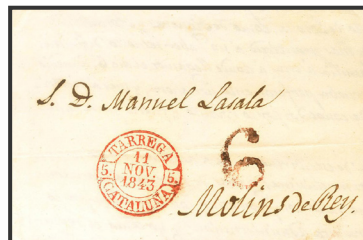 S. D. Manuel Lasala
TARREGA
11
NOV.
1843
5. 5.
CATALUÑA
6
Molins de Rey.